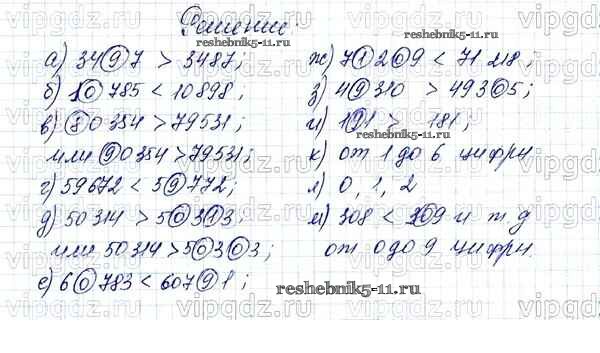 Решение:
reshebnik5-11.ru
а) 3497 > 3487;
б) 10785 < 10898;
в) 80354 > 79531;
или 90354 > 79531;
г) 59672 < 59772;
д) 50314 > 50313;
или 50314 > 50303;
е) 60783 < 60791;
ж) 71209 < 71218;
з) 49310 > 49305;
и) 191 > 181;
reshebnik5-11.ru
к) от 1 до 6 цифры
л) 0, 1, 2
м) 308 < 309 и т.д
от 0 до 9 цифры.
reshebnik5-11.ru
vipgdz.ru